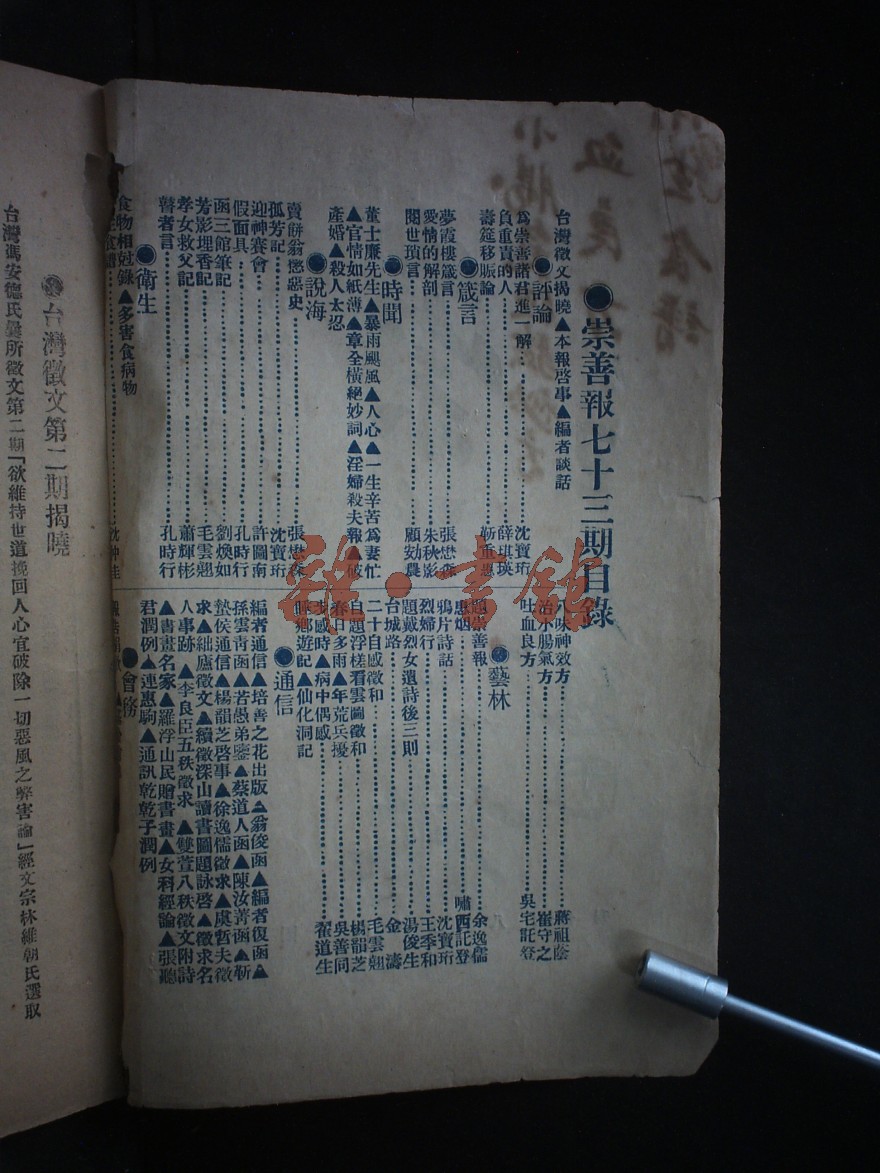 ●崇善報七十三期目錄
台灣徵文揭曉▲本報啓事▲編者談話
●評論
爲崇善諸君進一解……沈寶珩
負重責的人……薛琪瑛
壽筵移賑論……靳重思
●箴言
夢霞樓箴言……張懋森
愛情的解剖……朱秋影
閱世瑣言……顧効農
●時聞
董士廉先生▲暴雨颶風▲人心▲一生辛苦爲妻忙
▲官情如紙薄▲章全橫絕妙詞▲淫婦殺夫報▲破
產婚▲殺人太忍
●說海
賣餅翁懲惡史……張懋森
孤芳記……沈寶珩
迎神賽會……許圖南
假面具……孔時行
函三館筆記……劉煥如
芳影埋香記……毛雲翹
孝女救父記……蕭輝彬
瞽者言……孔時行
●衛生
食物相尅錄▲多害食病物
沈仲圭
八味神效方……蔣祖蔭
治小腸氣方……崔守之
吐血良方……吳宅託登
●藝林
題崇善報……余逸儒
惠烟……嘯西託登
鴉片詩話……沈寶珩
烈婦行……王季和
題戴烈女遺詩後三則……湯俊生
台城路……金濤
二十自感徵和……毛雲翹
自題浮槎看雲圖徵和……楊韻芝
春日多雨▲年荒兵擾……吳善同
步感時▲病中偶感……翟道生
睡鄉遊記▲仙化洞記
●通信
編者通信▲培善之花出版▲翁俊函▲編者復函▲
孫雲青函▲若愚弟鑒▲蔡道人函▲陳汝菁函▲靳
蟄侯通信▲楊韻芝啓事▲徐逸儒徵求▲虞哲夫徵
求▲絀廬徵文▲續徵深山讀書圖題詠啓▲徵求名
人事跡▲李良臣五秩徵求▲雙萱八秩徵文附詩
▲書畫名家▲羅浮山民贈書畫▲女科經論▲張聽
君潤例▲連惠駒▲通訊乾乾子潤例
●會務
●台灣徵文第二期揭曉
台灣馮安德氏彙所徵文第二期「欲維持世道挽回人心宜破除一切惡風之弊害論」經文宗林維朝氏選取
雜·書館